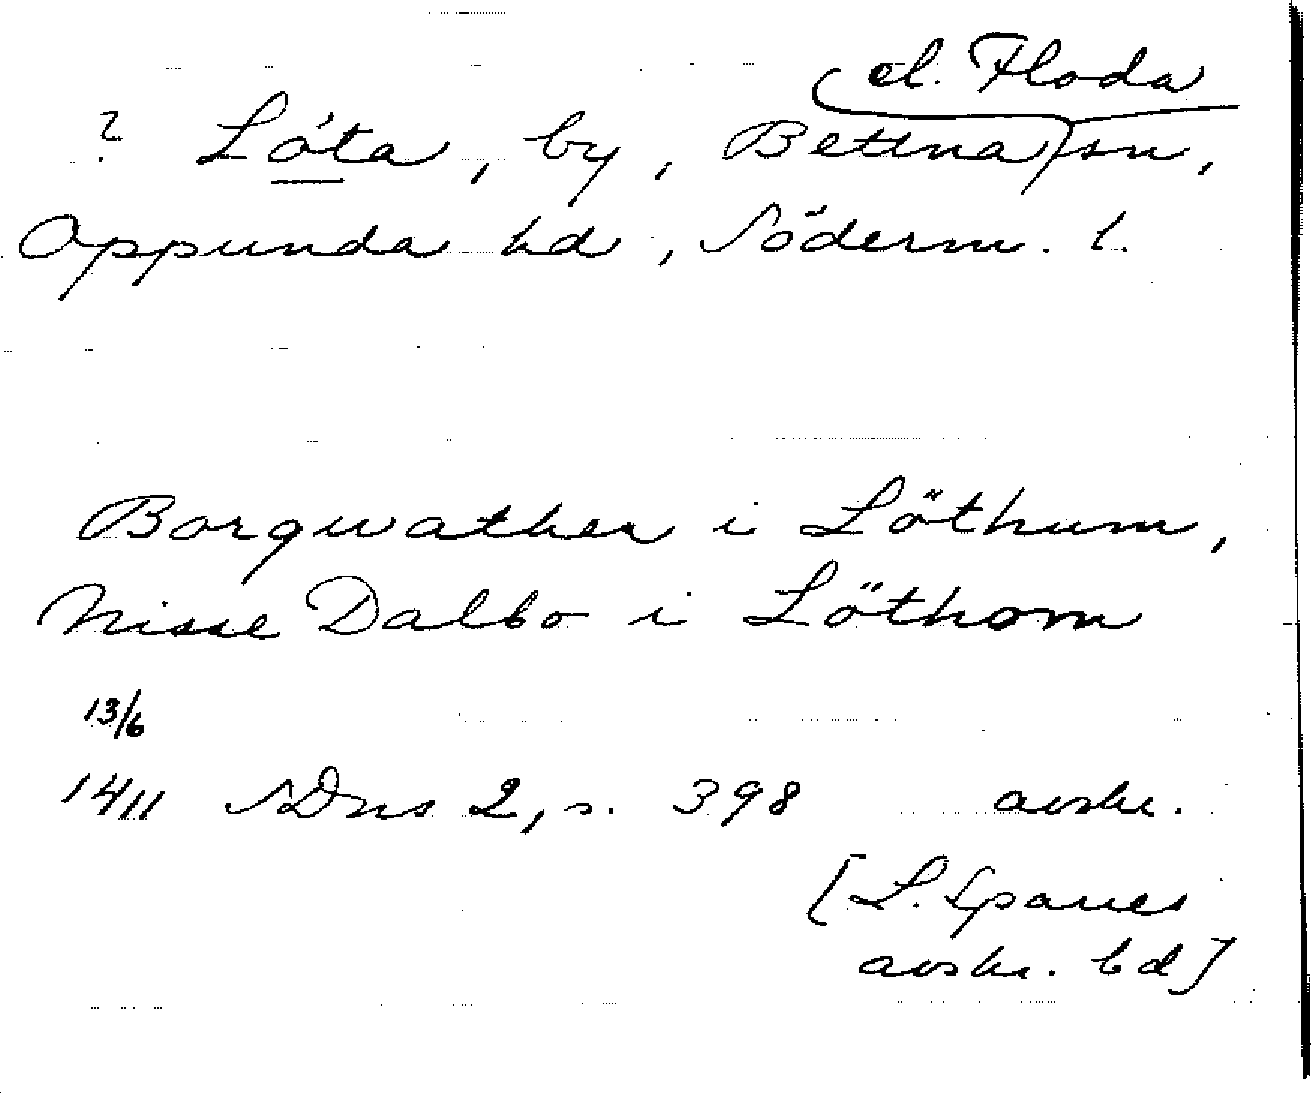 el. Floda
? Lóta, by, Bettna) sn,
Oppunda hd, Söderm. l.
Borgwather i Löthum,
Nisse Dalbo i Löthom
13/6
1411 SDns 2, s. 398 avskr.
[L. Sparres
avskr. bd]